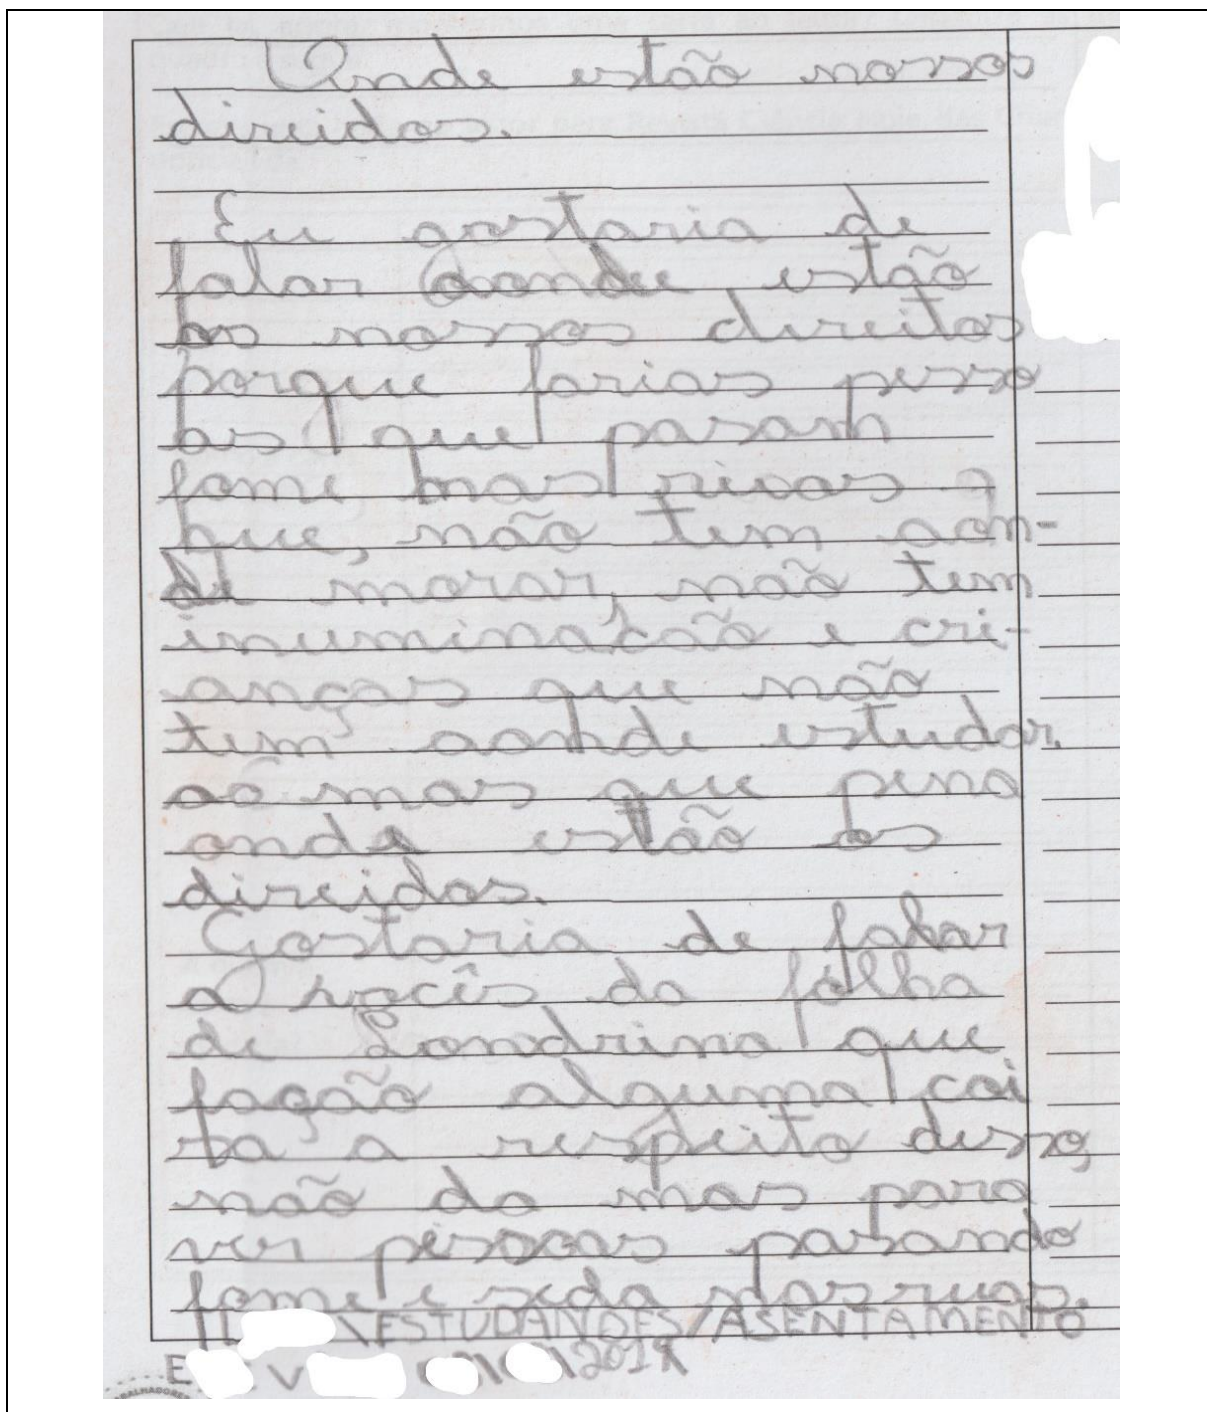 Onde estão nossos
direidos.
Eu gostaria de
falar aonde estão
os nossos direitos
porque farias pesso
as que pasam
fome nas ruas e
que, não tem aon-
de morar, não tem
inuminação e cri-
anças que não
tem aonde estudar.
ao mas que pena
onde estão os
direidos.
Gostaria de falar
a vocês da folha
de Londrina que
fação alguma coi
sa a respeito disso,
não da mas para
ver pessoas pasando
fome e sede nas ruas.
\ESTUDANDES/ASENTAMENTO
E V